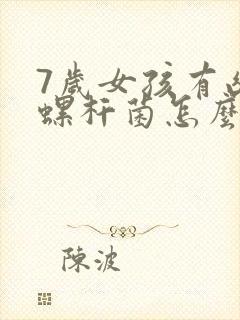 7歲女孩有
螺杆菌怎麼
陳波